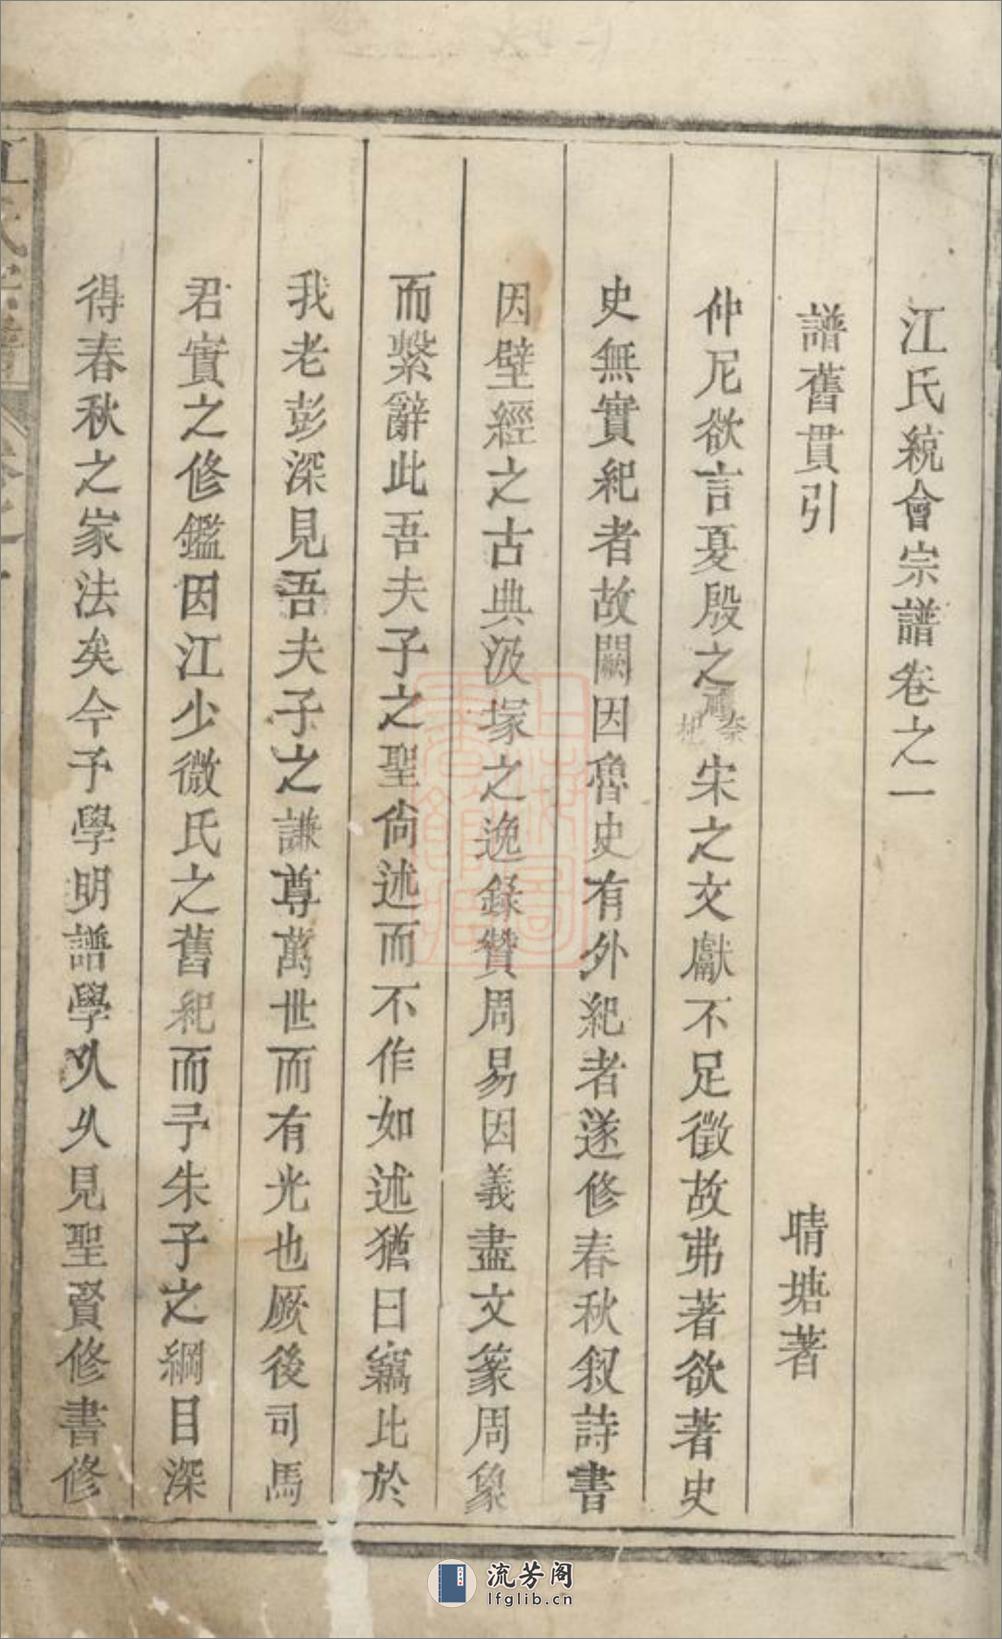 江氏統會宗譜卷之一
譜舊貫引
晴塘著
仲尼欲言夏殷之禮奈杞宋之文獻不足徵故弗著欲著史
史無實紀者故闕因魯史有外紀者遂修春秋叙詩書
因壁經之古典汲塚之逸錄贊周易因義盡文篆周象
而繫辭此吾夫子之聖尙述而不作如述猶曰竊比於
我老彭深見吾夫子之謙尊萬世而有光也厥後司馬
君實之修鑑因江少微氏之舊紀而子朱子之綱目深
得春秋之家法矣今予學明譜學久久見聖賢修書修
流芳阁
lfglib.cn